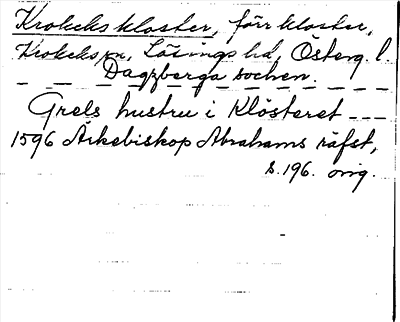 Krokeks kloster, förr kloster,
Krokeks sn, Lösings hd, Österg. l.
_ _ _ Dagsberga socken. _ _ _
Grels hustru i Klösteret ---
1596 Ärkebiskop Abrahams räfst,
s. 196. orig.